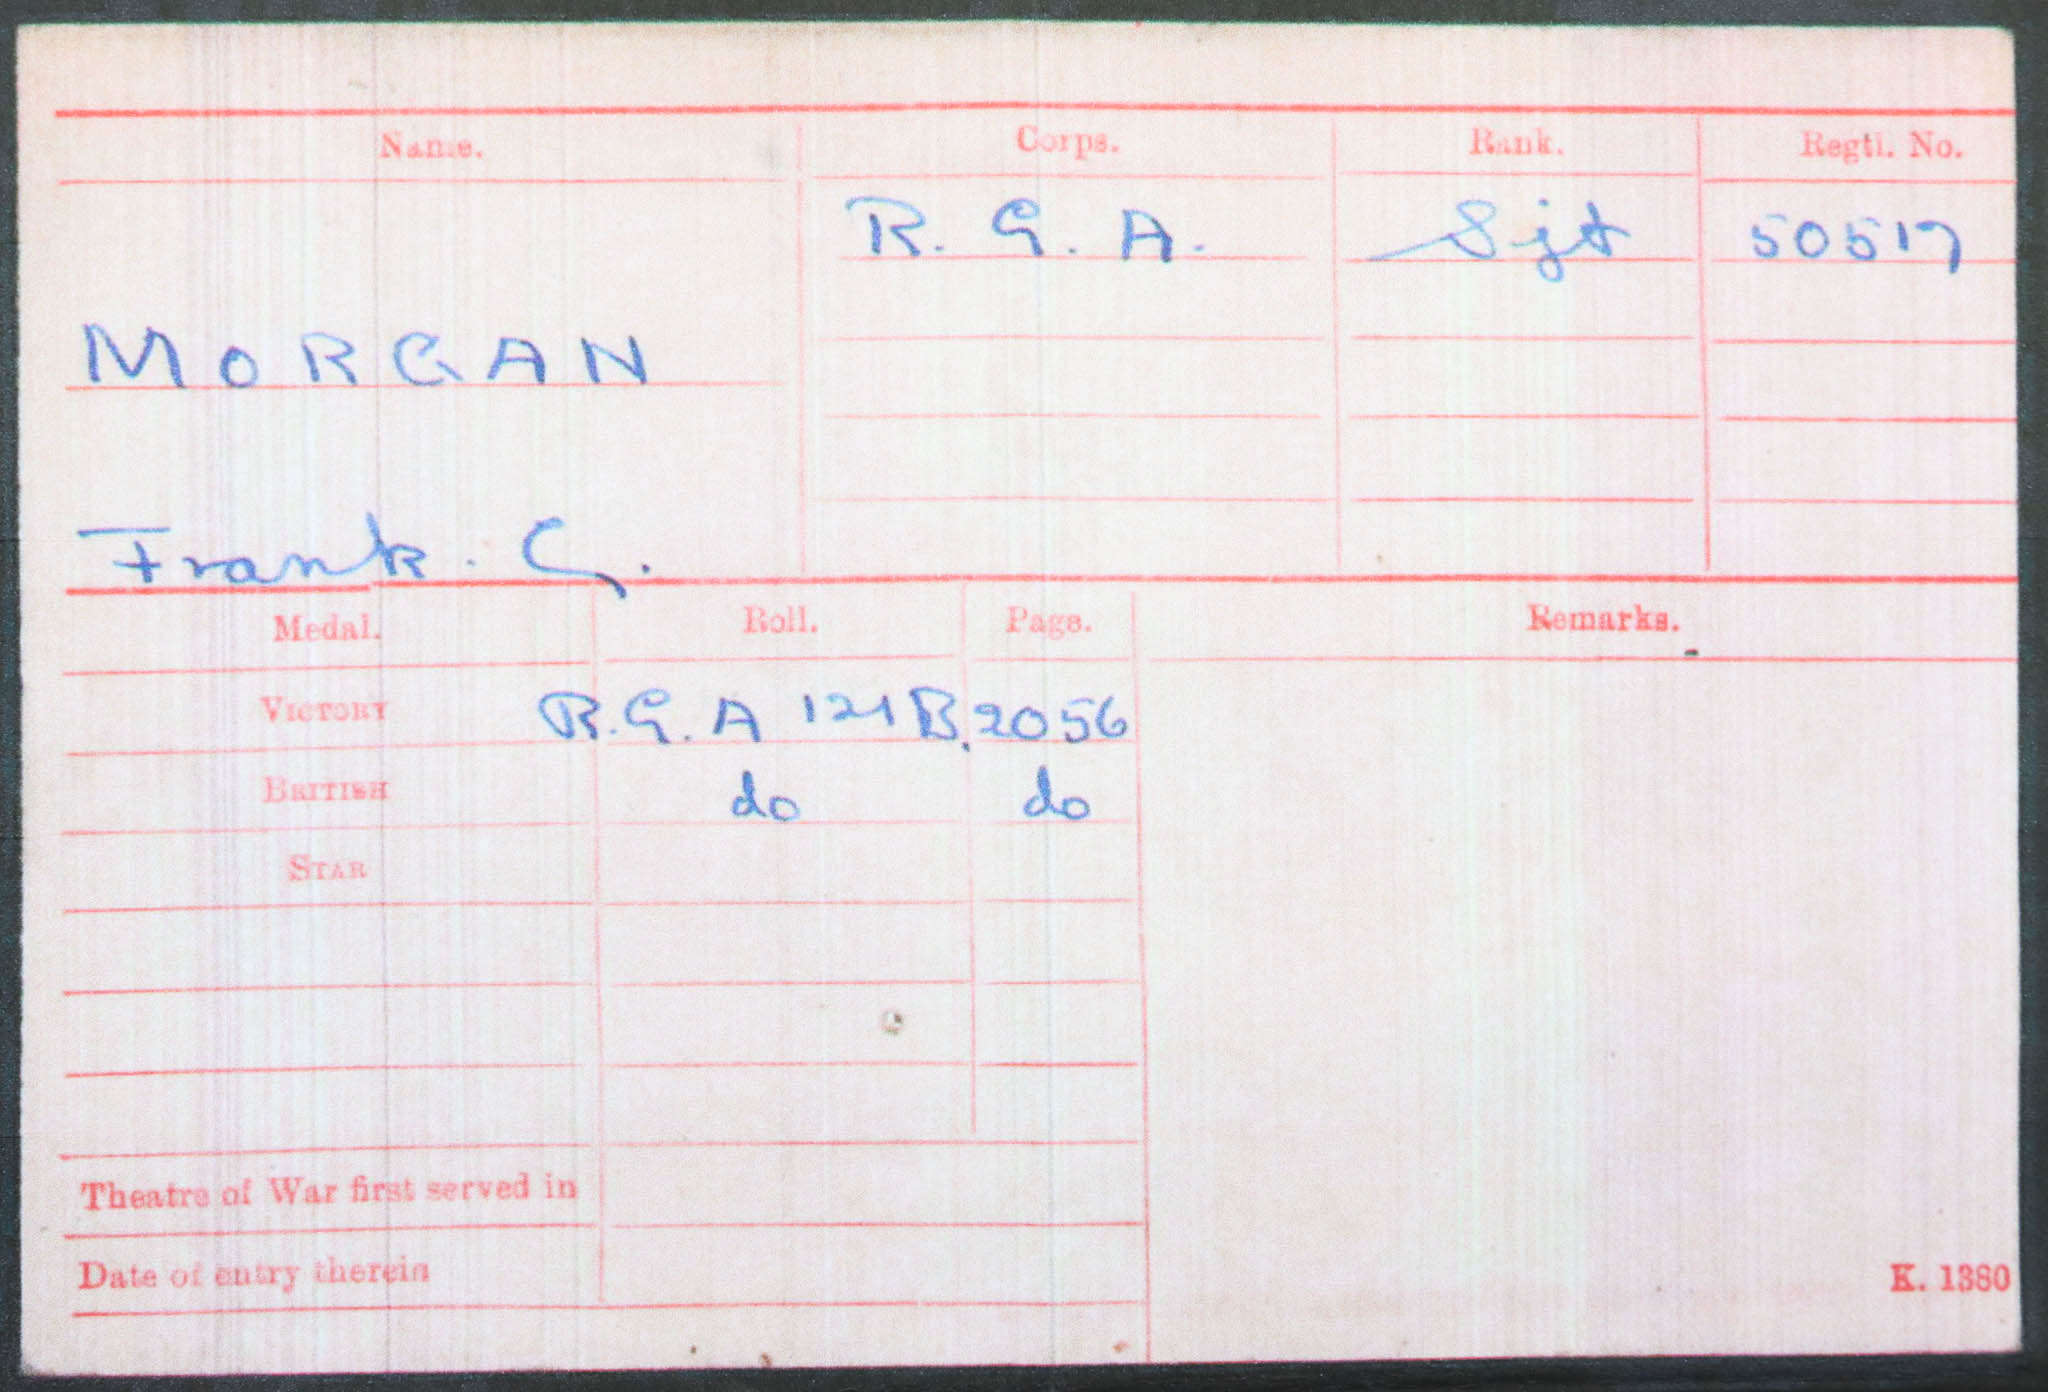 Name. Corps. Rank. Regtl. No.
R. G. A. Sjt 50517
MORGAN
Frank. C.
Medal. Roll. Page. Remarks.
VICTORY R.G.A 121B. 2056
BRITISH do do
STAR
Theatre of War first served in
Date of entry therein
K. 1380